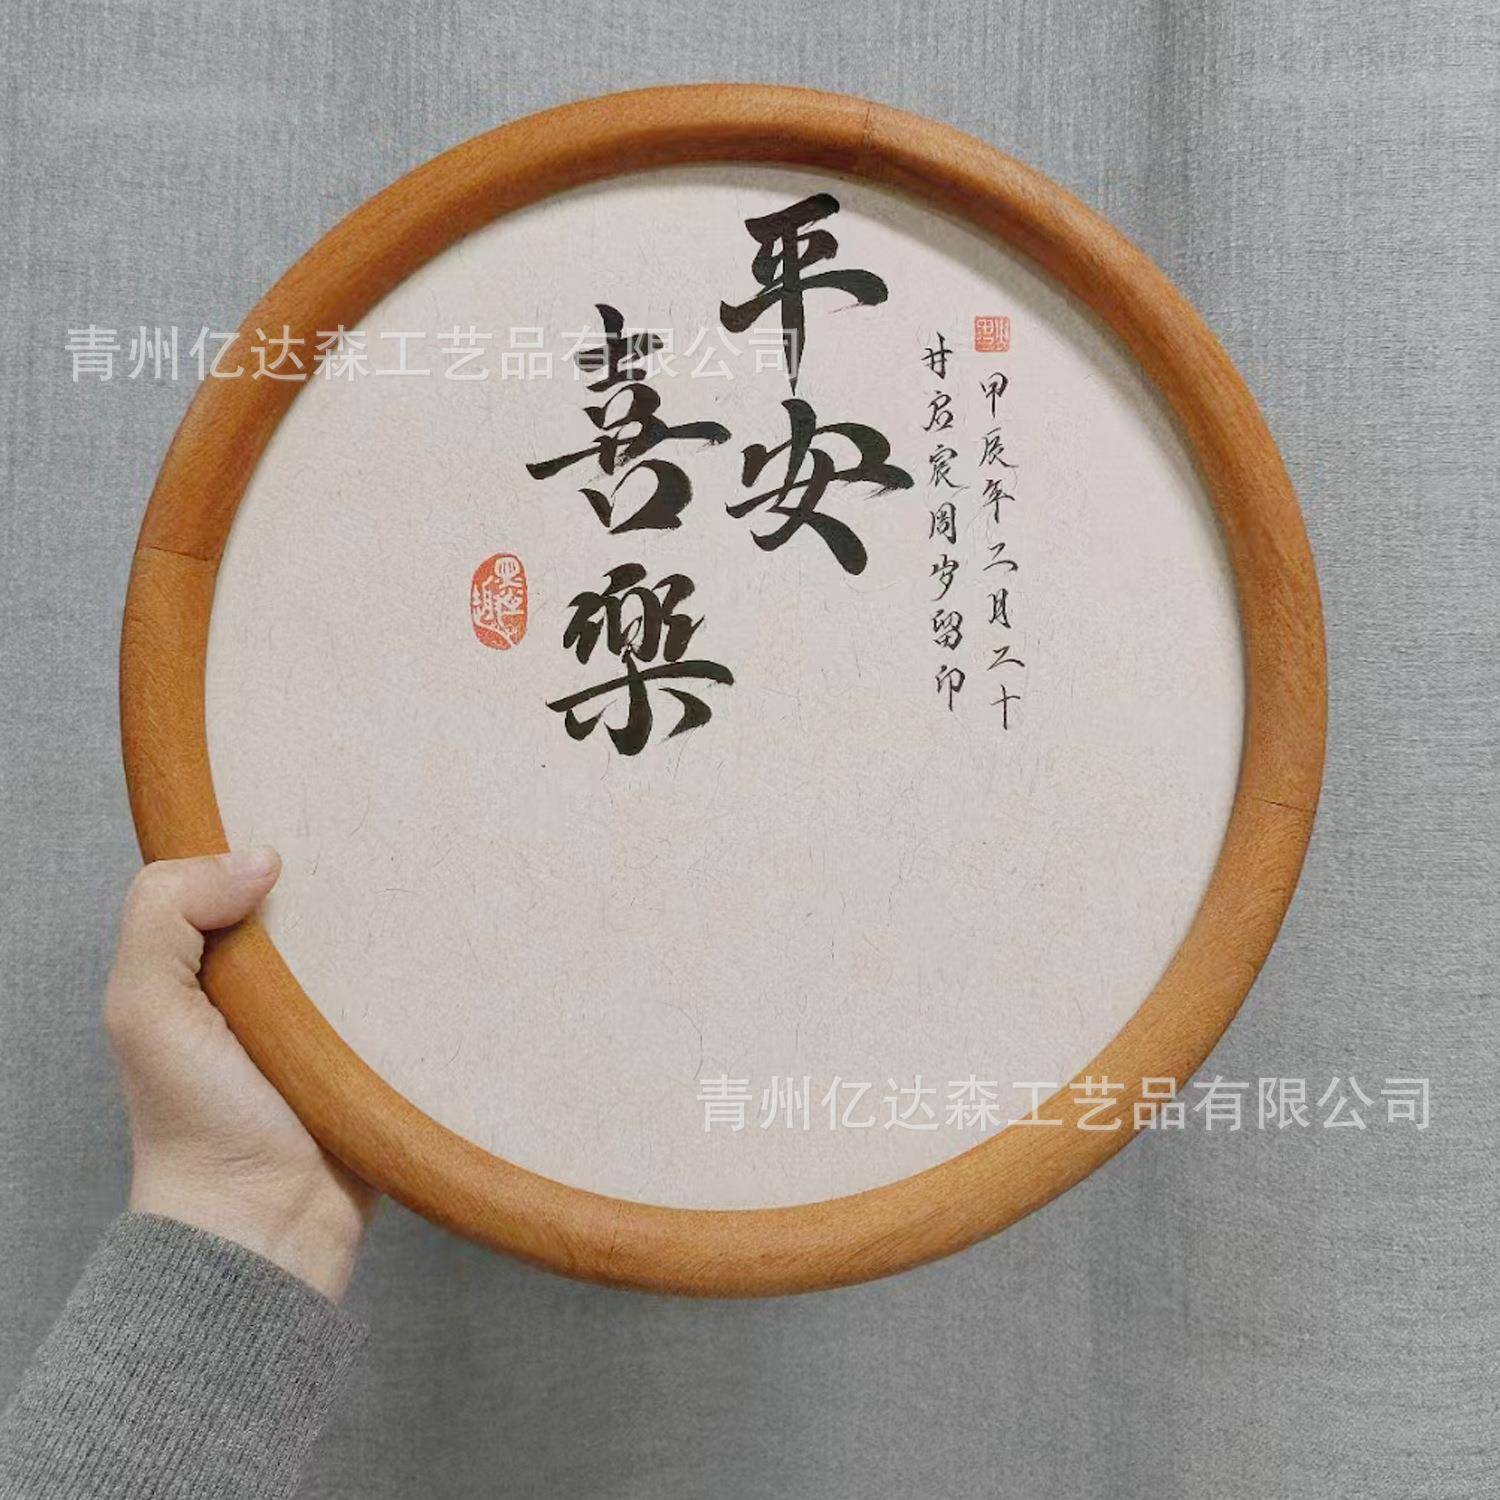 平安
喜樂
甲辰年二月二十
甘启宸周岁留印
青州亿达森工艺品有限公司
青州亿达森工艺品有限公司